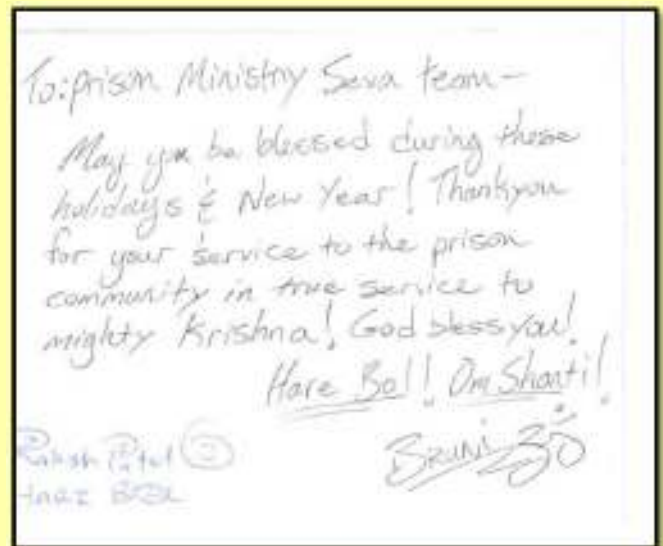 To: prison Ministry Seva team -
May you be blessed during these
holidays & New Year! Thankyou
for your service to the prison
community in true service to
mighty Krishna! God bless you!
Hare Bol! Om Shanti!
Bruni ॐ
Patel 2